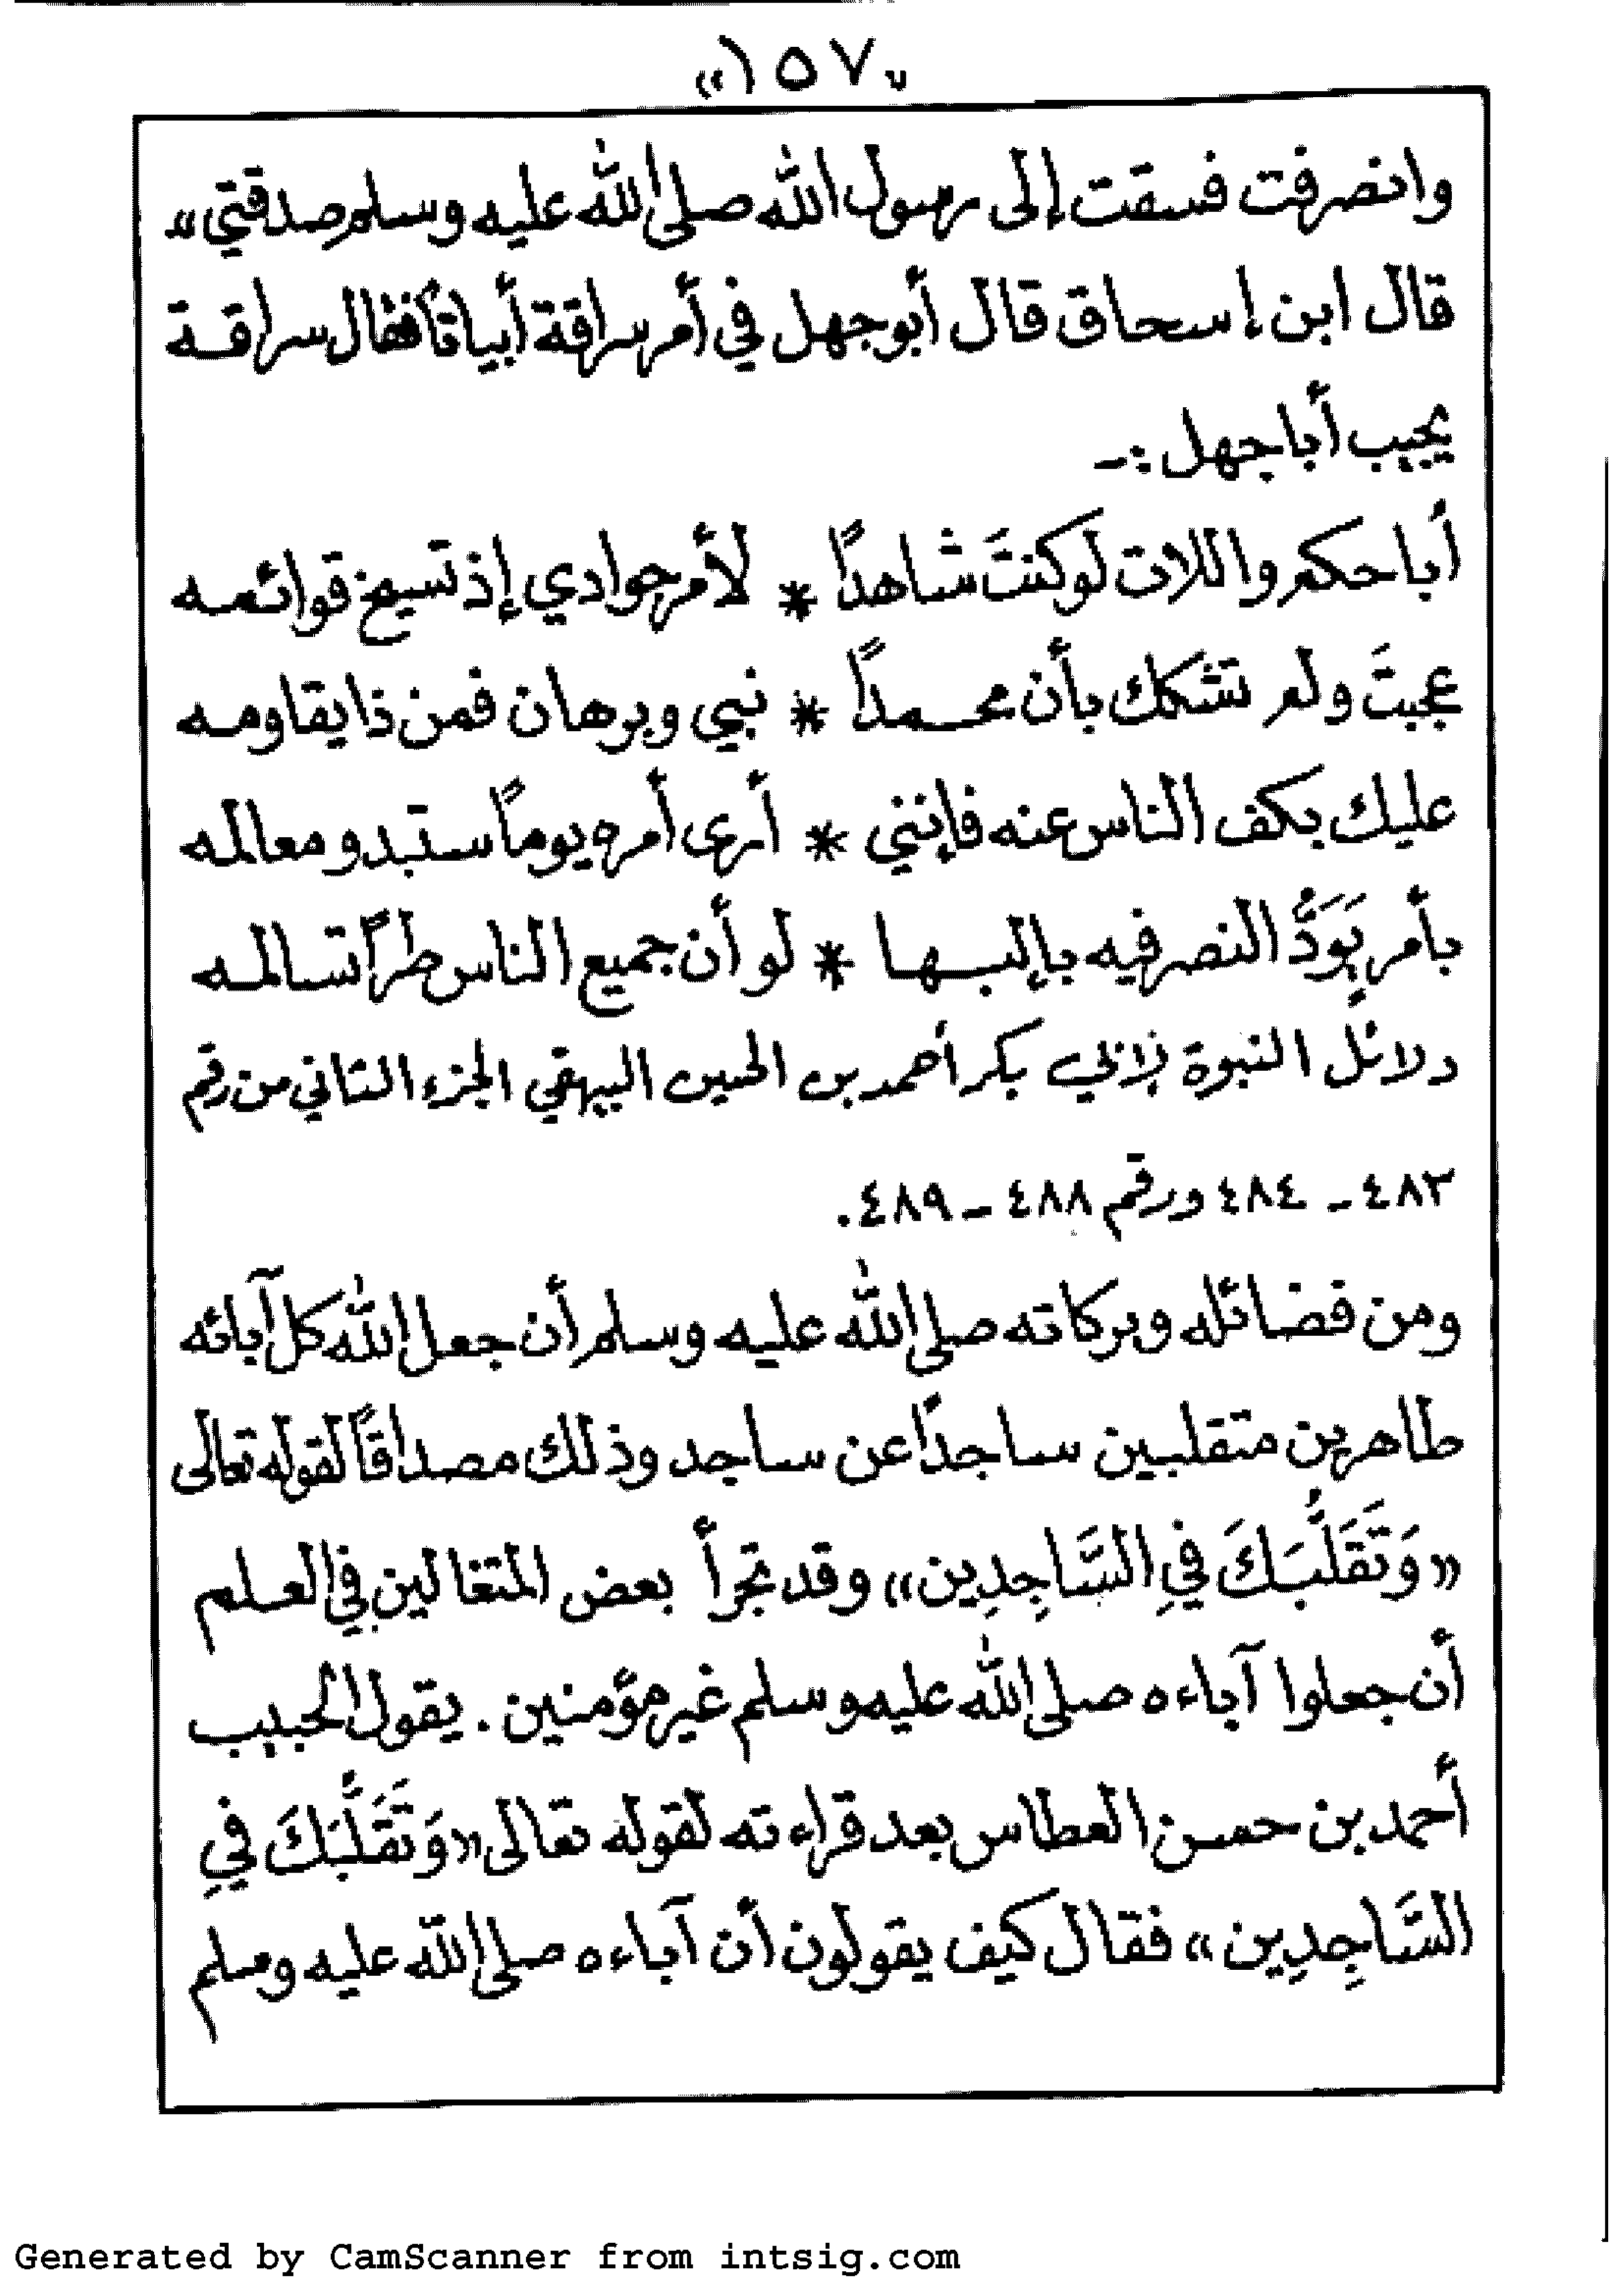 «١٥٧»
وانصرفت فسقت إلى رسول الله صلى الله عليه وسلم صدقتي»
قال ابن إسحاق قال أبو جهل في أمر سراقة أبياتاً فقال سراقة
يجيب أبا جهل :-
أبا حكم واللات لو كنتَ شاهداً * لأمر جوادي إذ تسيخ قوائمه
عجبتَ ولم تشكك بأن محمداً * نبي وبرهان فمن ذا يقاومه
عليك بكف الناس عنه فإنني * أرى أمره يوماً ستبدو معالمه
بأمر يَوَدُّ النصر فيه بإلبها * لو أن جميع الناس طراً تسالمه
دلائل النبوة لأبي بكر أحمد بن الحسين البيهقي الجزء الثاني من رقم
٤٨٣ - ٤٨٤ ورقم ٤٨٨ - ٤٨٩.
ومن فضائله وبركاته صلى الله عليه وسلم أن جعل الله كل آبائه
طاهرين متقلبين ساجداً عن ساجد وذلك مصداقاً لقوله تعالى
«وَتَقَلُّبَكَ فِي السَّاجِدِين» وقد تجرأ بعض المتغالين في العلم
أن جعلوا آباءه صلى الله عليه وسلم غير مؤمنين. يقول الحبيب
أحمد بن حسن العطاس بعد قراءته لقوله تعالى «وَتَقَلُّبَكَ فِي
السَّاجِدِين» فقال كيف يقولون أن آباءه صلى الله عليه وسلم
Generated by CamScanner from intsig.com